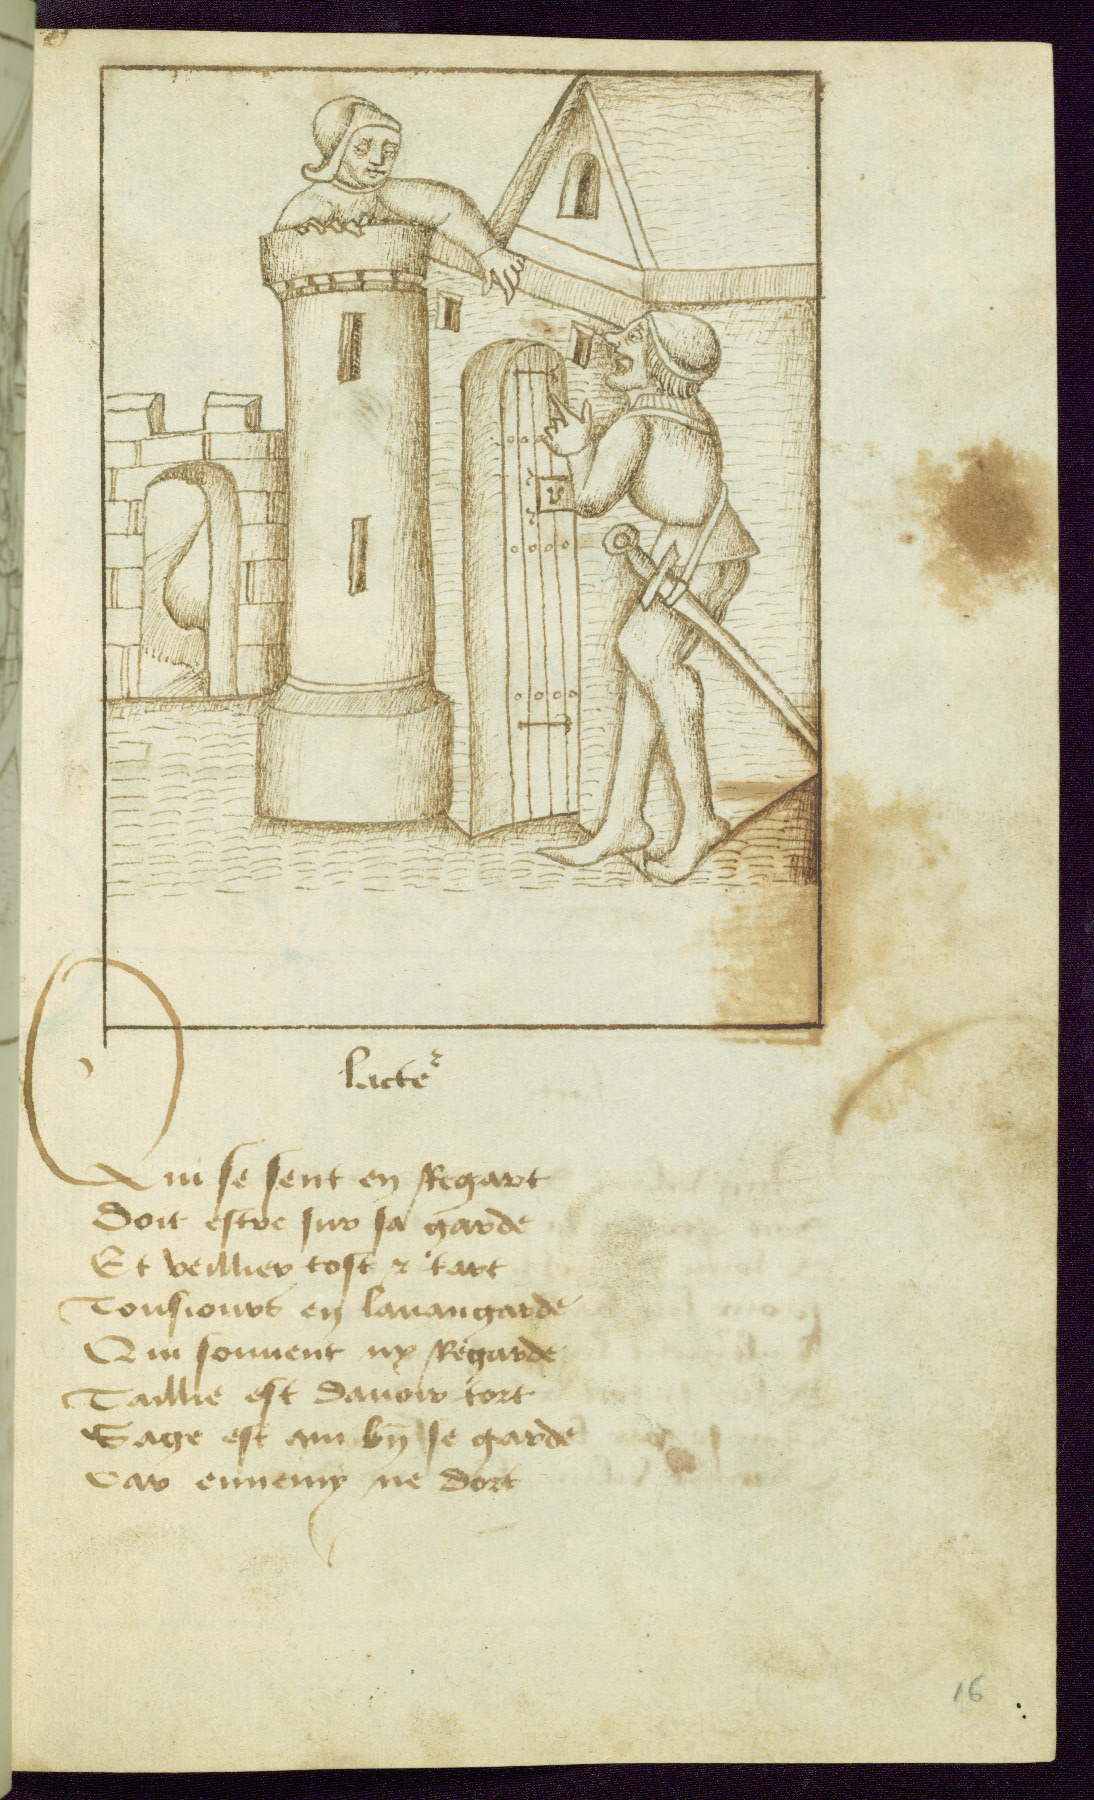 lacteꝛ
Qui se sent en Regart
Doit estre sur sa garde
Et veillier tost ⁊ tart
Tousiours en lauangarde
Qui souuent ny Regarde
Taillie est dauoir tort
Sage est qui bn̄ se garde
Car ennemy ne dort
16